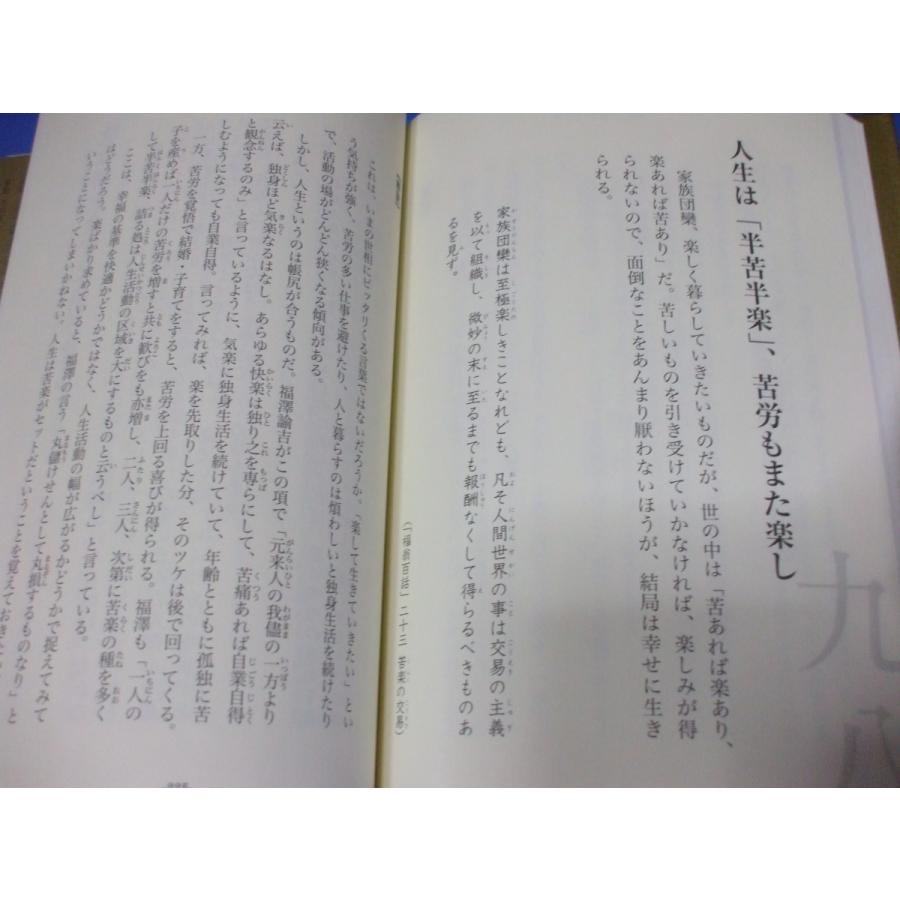 九八
人生は「半苦半楽」、苦労もまた楽し
家族団欒、楽しく暮らしていきたいものだが、世の中は「苦あれば楽あり、
楽あれば苦あり」だ。苦しいものを引き受けていかなければ、楽しみが得
られないので、面倒なことをあんまり厭わないほうが、結局は幸せに生き
られる。
家族団欒は至極楽しきことなれども、凡そ人間世界の事は交易の主義
を以て組織し、微妙の末に至るまでも報酬なくして得らるべきものあ
るを見ず。
(「福翁百話」二十三 苦楽の交易)
これは、いまの世相にピッタリくる言葉ではないだろうか。「楽して生きていきたい」とい
う気持ちが強く、苦労の多い仕事を避けたり、人と暮らすのは煩わしいと独身生活を続けたり
で、活動の場がどんどん狭くなる傾向がある。
しかし、人生というのは帳尻が合うものだ。福澤諭吉がこの項で「元来人の我儘の一方より
云えば、独身ほど気楽なるはなし。あらゆる快楽は独り之を専らにして、苦痛あれば自業自得
と観念するのみ」と言っているように、気楽に独身生活を続けていて、年齢とともに孤独に苦
しむようになっても自業自得。言ってみれば、楽を先取りした分、そのツケは後で回ってくる。
一方、苦労を覚悟で結婚・子育てをすると、苦労を上回る喜びが得られる。福澤も「一人の
子を産めば一人だけの苦労を増すと共に歓びをも亦増し、二人、三人、次第に苦楽の種を多く
して半苦半楽、詰る処は人生活動の区域を大にするものと云うべし」と言っている。
ここは、幸福の基準を快適かどうかではなく、人生活動の幅が広がるかどうかで捉えてみて
はどうだろう。楽ばかり求めていると、福澤の言う「丸儲けせんとして丸損するものなり」と
いうことになってしまいかねない。人生は苦楽がセットだということを覚えておき